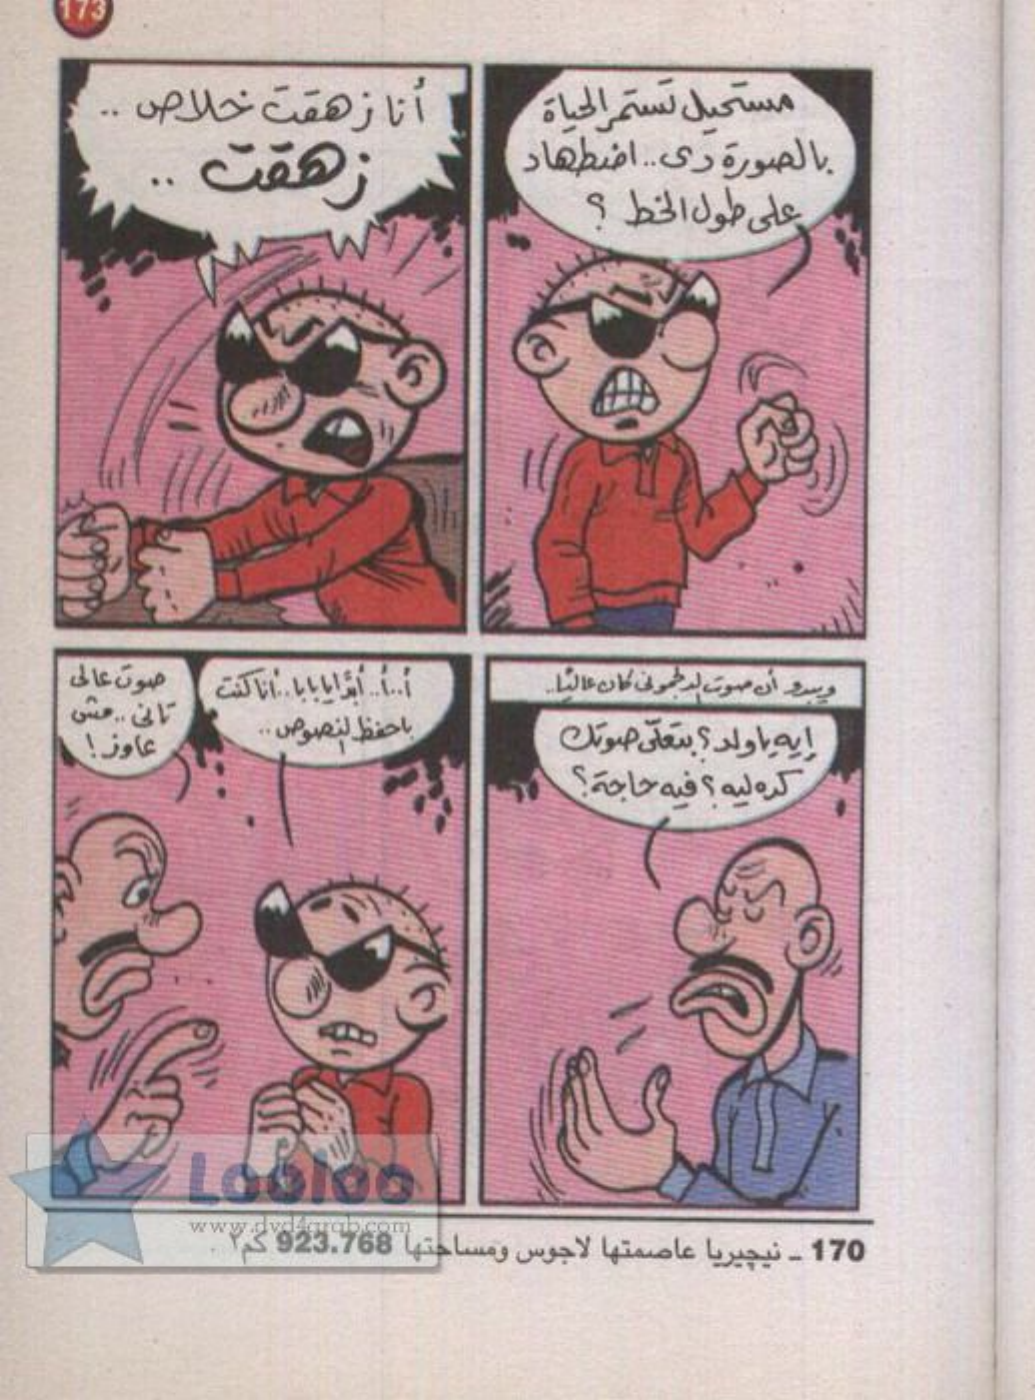 173
مستحيل تستمر الحياة
بالصورة دى.. اضطهاد
على طول الخط ؟
أنا زهقت خلاص ..
زهقت ..
ويبدو أن صوت الدطمونى كان عاليًا..
إيه ياولد؟ بتعلّى صوتك
كده ليه؟ فيه حاجة؟
أ..أ.. أبدًا يابابا.. أنا كنت
باحفظ النصوص..
صوت عالى
تانى.. مش
عاوز!
170 ـ نيجيريا عاصمتها لاجوس ومساحتها 923.768 كم٢ .
Looloo
www.dvd4arab.com